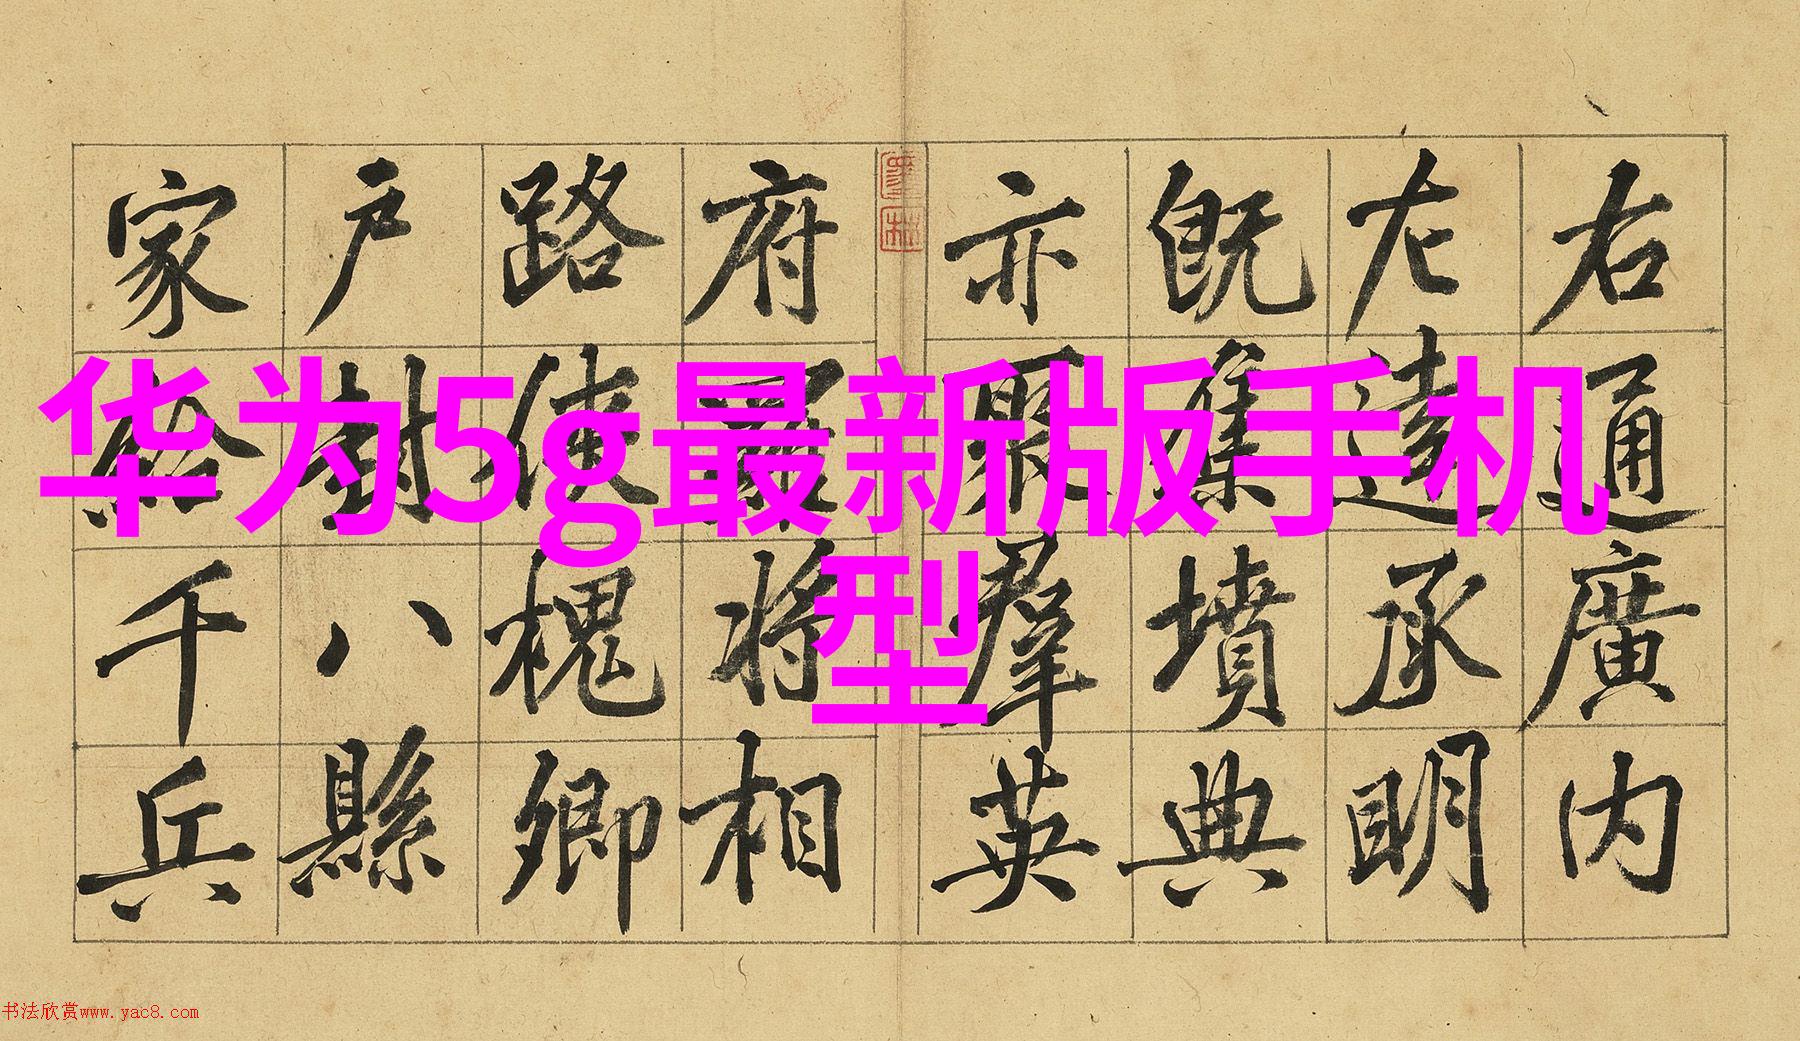 华为5g最新版手机
型
右通廣内
左達承明
既集墳典
亦聚羣英
府羅將相
路俠槐卿
户封八縣
家給千兵
书法欣赏www.yac8.com